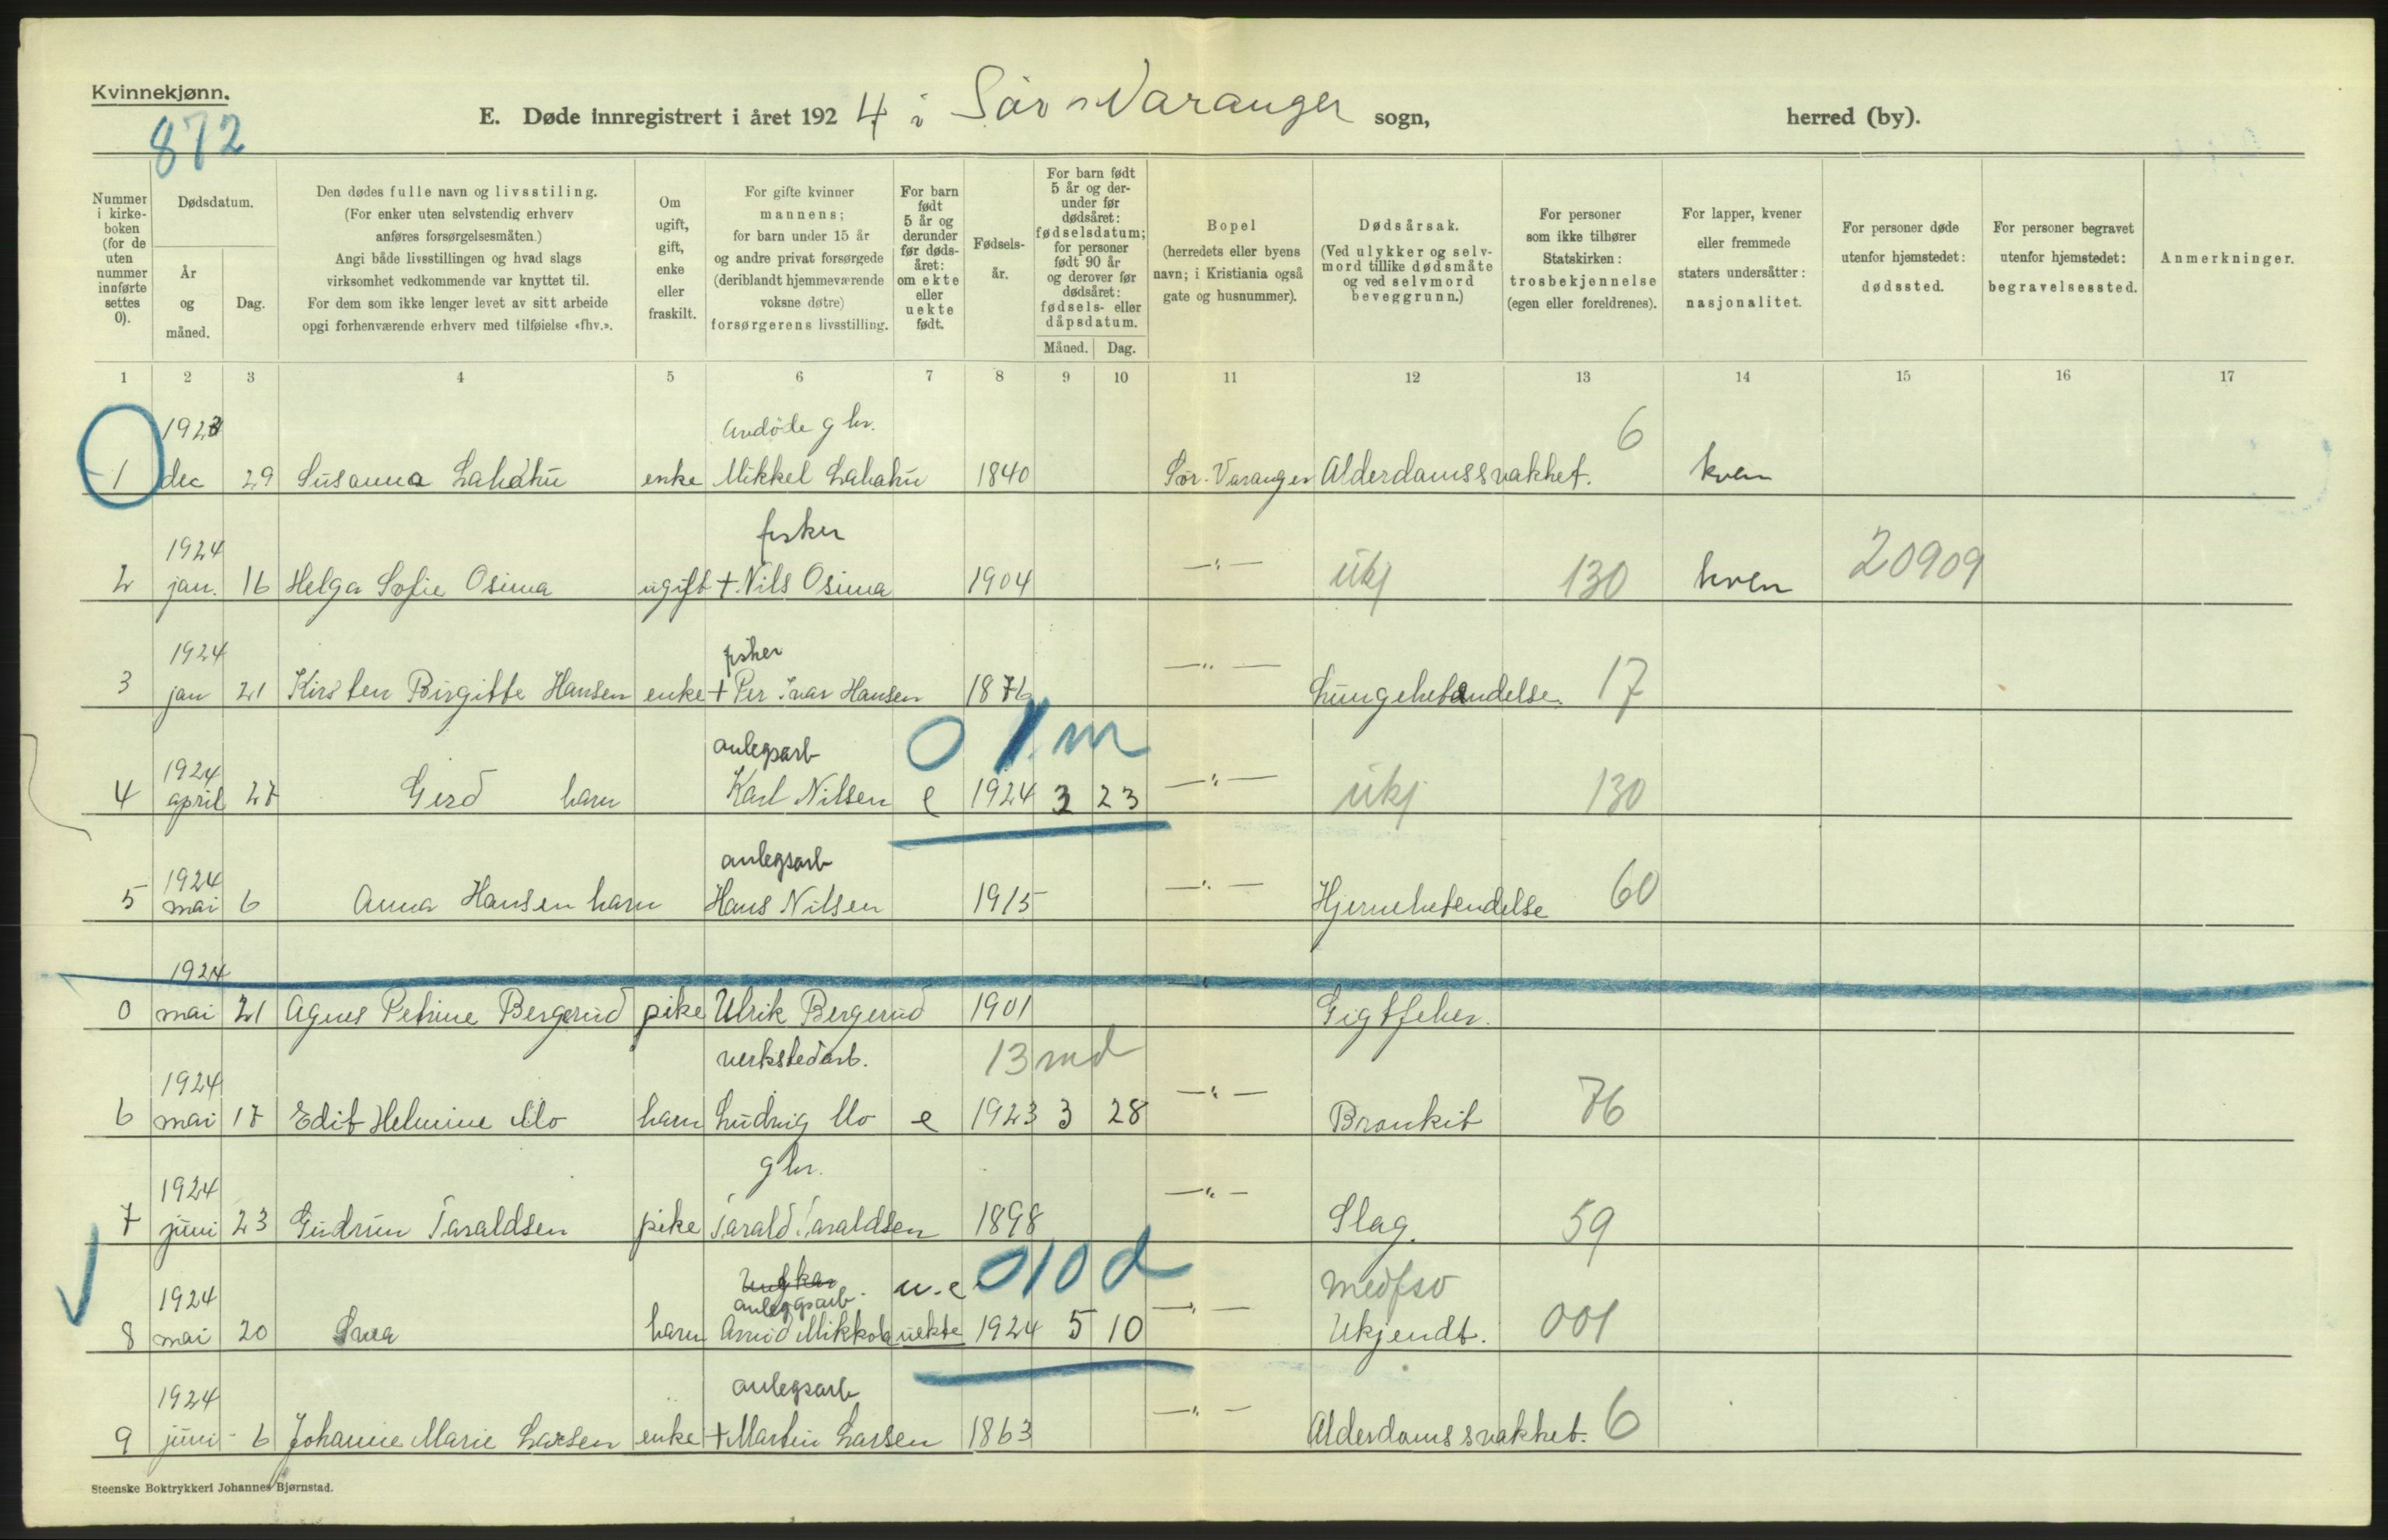 Kvinnekjønn.
872
E. Døde innregistrert i året 1924 i Sør-Varanger sogn, herred (by).
Nummer i kirke- boken (for de uten nummer innførte settes 0).
Dødsdatum.
År og måned.
Dag.
Den dødes fulle navn og livsstiling.
(For enker uten selvstendig erhverv
anføres forsørgelsesmåten.)
Angi både livsstillingen og hvad slags
virksomhet vedkommende var knyttet til.
For dem som ikke lenger levet av sitt arbeide
opgi forhenværende erhverv med tilføielse «fhv.».
Om ugift, gift, enke eller fraskilt.
For gifte kvinner
mannens;
for barn under 15 år
og andre privat forsørgede
(deriblandt hjemmeværende
voksne døtre)
forsørgerens livsstilling.
For barn født 5 år og derunder før døds- året: om ekte eller uekte født.
Fødsels- år.
For barn født 5 år og der- under før dødsåret: fødselsdatum; for personer født 90 år og derover før dødsåret: fødsels- eller dåpsdatum.
Måned. Dag.
Bopel
(herredets eller byens
navn; i Kristiania også
gate og husnummer).
Dødsårsak.
(Ved ulykker og selv-
mord tillike dødsmåte
og ved selvmord
beveggrunn.)
For personer
som ikke tilhører
Statskirken:
trosbekjennelse
(egen eller foreldrenes).
For lapper, kvener
eller fremmede
staters undersåtter:
nasjonalitet.
For personer døde
utenfor hjemstedet:
dødssted.
For personer begravet
utenfor hjemstedet:
begravelsessted.
Anmerkninger.
1 2 3 4 5 6 7 8 9 10 11 12 13 14 15 16 17
1923 6
1 dec 29 Susanna Lahdhu enke Mikkel Lahahu 1840 Sør-Varanger Alderdomssvakhet. kven
1924 fisker
2 jan. 16 Helga Sofie Osima ugift + Nils Osima 1904 —"— ukj 130 kven 20909
1924 fisker
3 jan 21 Kirsten Birgitte Hansen enke + Per Ivar Hansen 1876 —"— Lungebetendelse. 17
1924 anlegsarb 0 1 m
4 april 27 Gerd barn Karl Nilsen e 1924 3 23 —"— ukj 130
1924 anlegsarb
5 mai 6 Anna Hansen barn Hans Nilsen 1915 —"— Hjernebetendelse 60
1924
0 mai 21 Agnes Petrine Bergerud pike Ulrik Bergerud 1901 " Gigtfeber.
1924 verkstedarb. 13 md
6 mai 17 Edit Helmine Mo barn Ludvig Mo e 1923 3 28 —"— Bronkit 76
1924 gbr.
7 juni 23 Gudrun Taraldsen pike Tarald Taraldsen 1898 —"— Slag. 59
1924 Ungkar anleggsarb. u.e 0 10 d medfsv
8 mai 20 Svea barn Arvid Mikkola uekte 1924 5 10 —"— Ukjendt. 001
1924 anlegsarb
9 juni 6 Johanne Marie Larsen enke + Martin Larsen 1863 —"— Alderdomssvakhet. 6
Steenske Boktrykkeri Johannes Bjørnstad.